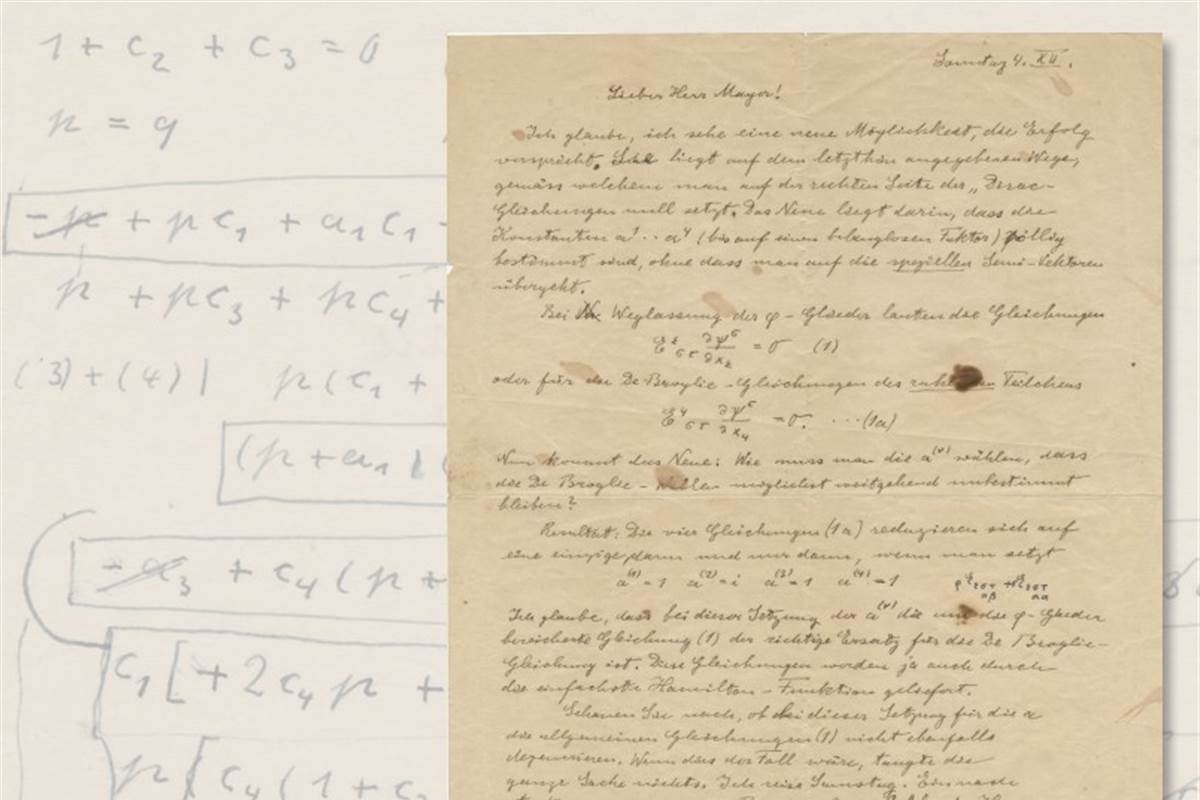 1 + c₂ + c₃ = 0
p = q
- p + p c₁ + a₁ c₁ -
p + p c₃ + p c₄ +
(3) + (4) | p (c₁ +
(p + a₁) (
- a₃ + c₄ (p +
c₁ [ + 2 c₄ p +
p [ c₄ ( 1 + c₂
Sonntag 4. XII.
Lieber Herr Mayer!
Ich glaube, ich sehe eine neue Möglichkeit, die Erfolg
verspricht. Sie liegt auf dem letzthin angegebenen Wege,
gemäss welchem man auf der rechten Seite der „Dirac-
Gleichungen null setzt. Das Neue liegt darin, dass die
Konstanten a¹ ·· a⁴ (bis auf einen belanglosen Faktor) völlig
bestimmt sind, ohne dass man auf die speziellen Semi-Vektoren
übergeht.
Bei Weglassung der φ-Glieder lauten die Gleichungen
E^r_στ ∂ψ^σ/∂x_r = 0 (1)
oder für die De Broglie-Gleichungen des ruhenden Teilchens
E^4_στ ∂ψ^σ/∂x_4 = 0. ···(1a)
Nun kommt das Neue: Wie muss man die a^(ν) wählen, dass
die De Broglie-Wellen möglichst weitgehend unbestimmt
bleiben?
Resultat: Die vier Gleichungen (1a) reduzieren sich auf
eine einzige dann und nur dann, wenn man setzt
a^(1) = 1 a^(2) = i a^(3) = 1 a^(4) = 1
Ich glaube, dass bei dieser Setzung der a^(ν) die um die φ-Glieder
bereicherte Gleichung (1) der richtige Ersatz für die De Broglie-
Gleichung ist. Diese Gleichungen werden ja auch durch
die einfachste Hamilton-Funktion geliefert.
Schauen Sie nach, ob bei dieser Setzung für die a
die allgemeinen Gleichungen (1) nicht ebenfalls
degenerieren. Wenn dies der Fall wäre, taugte die
ganze Sache nichts. Ich reise Samstag.